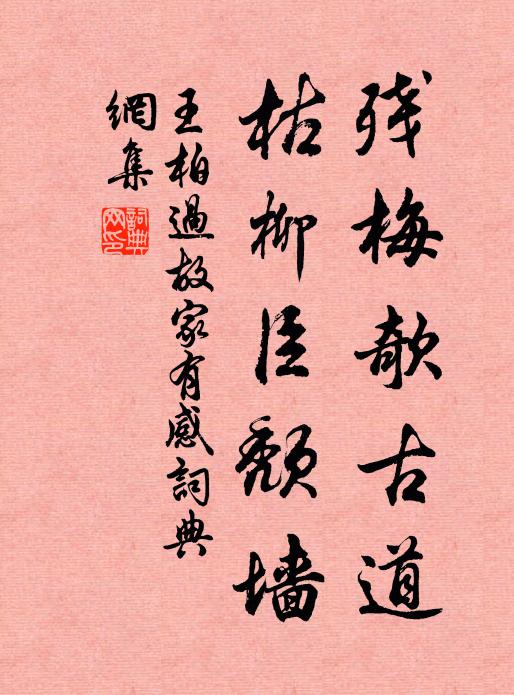 残梅欹古道
枯柳臣颓墙
王柏過故家有感詞典
網集
詞典网印